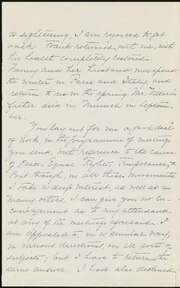 to sightseeing, I am rejoiced to get
back. Frank returned with me, with
his health completely restored.
Fanny and her husband will spend
the winter in Paris and Italy and
return to us in the spring. Mr.
father died in Munich in Septem-
ber.
You lay out for me a good deal
of work in the programme of meetings
you send, with reference to the cause
of Peace, Equal Rights, Temperance, &c.
But though in all these movements
I take a deep interest, as well as in
many others, I can give you no en-
couragement as to my attendance
at any of the meetings aforesaid. I
am appealed to, in a similar way,
in various directions, on all sorts of
subjects; but I have to return the
same answer. I had also declined